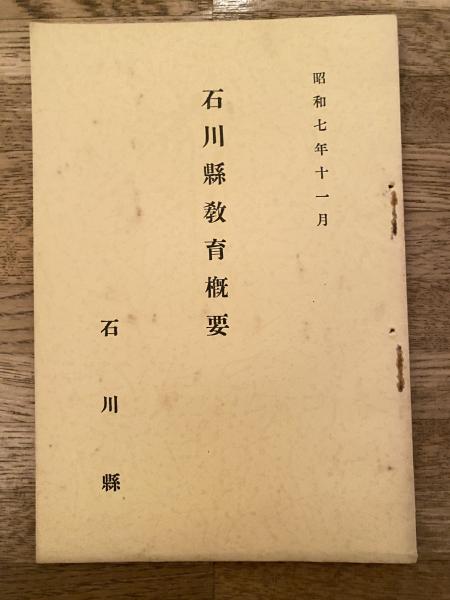 昭和七年十一月
石川縣敎育槪要
石川縣